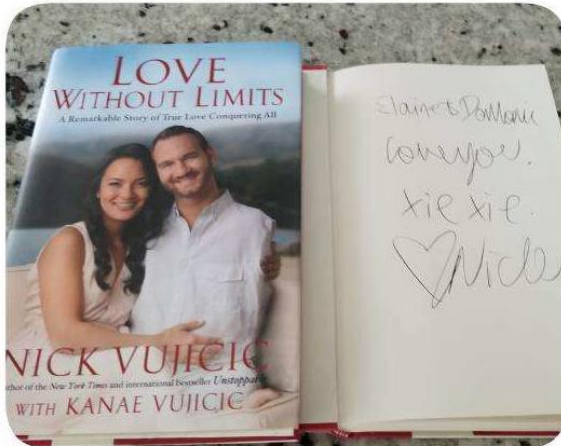 LOVE
WITHOUT LIMITS
A Remarkable Story of True Love Conquering All
NICK VUJICIC
thor of the New York Times and international bestseller Unstoppab
WITH KANAE VUJICIC
Elaine & Dominic
Love you.
xie xie.
Nick